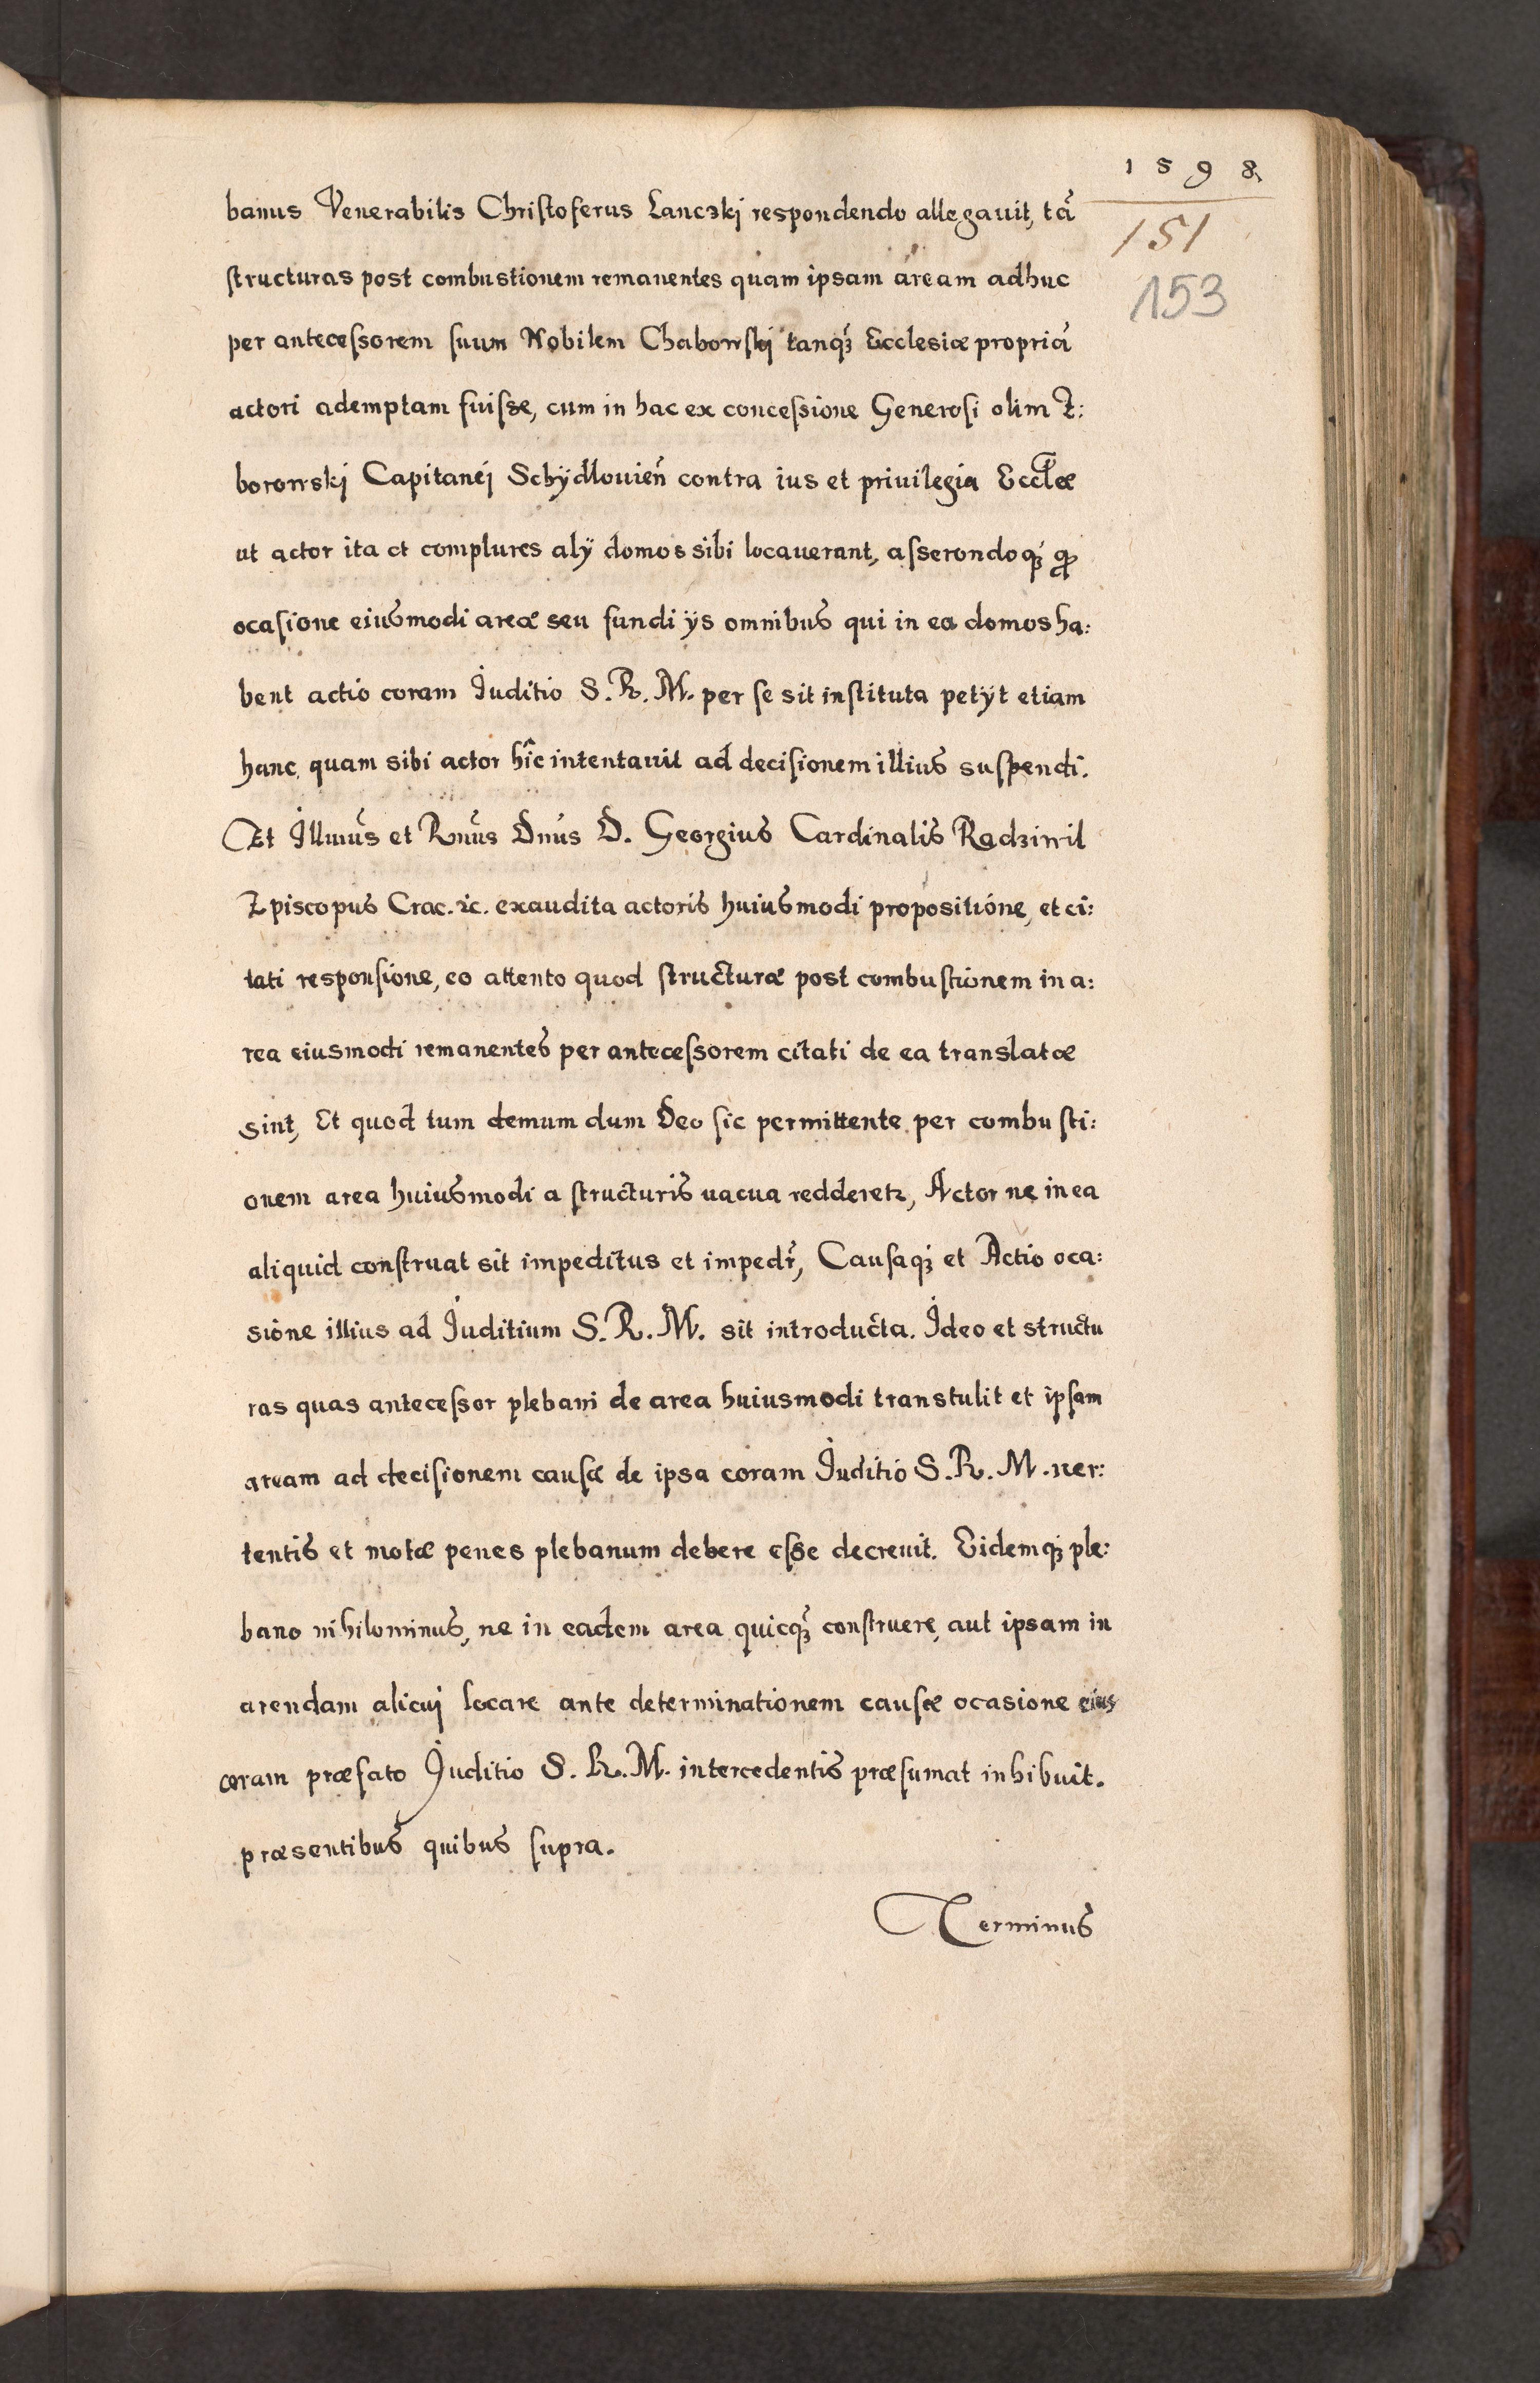 1598
151
153
banus Venerabilis Christoferus Lanczkj respondendo allegauit, tã
structuras post combustionem remanentes quam ipsam aream adhuc
per antecessorem suum Nobilem Chaborrskj tanqꝫ Ecclesiæ propriã
actori ademptam fuisse, cum in hac ex concessione Generosi olim Z:
borowskj Capitanej Schÿdlouieñ contra ius et priuilegia Eccłæ
ut actor ita et complures alÿ domos sibi locauerant, asserendoqꝫ ꝙ
ocasione eiusmodi areæ seu fundi ÿs omnibus qui in ea domos ha:
bent actio coram Juditio S. R. M. per se sit instituta petÿt etiam
hanc, quam sibi actor hîc intentauit ad decisionem illius suspendi.
Et Illmūs et Rmūs Dnūs D. Georgius Cardinalis Radziwil
Episcopus Crac. ꝛc. exaudita actoris huiusmodi propositione, et ci:
tati responsione, eo attento quod structuræ post combustionem in a:
rea eiusmodi remanentes per antecessorem citati de ea translatæ
sint, Et quod tum demum dum Deo sic permittente per combusti:
onem area huiusmodi a structuris uacua redderetꝛ, Actor ne in ea
aliquid construat sit impeditus et impedr̃, Causaqꝫ et Actio oca:
sione illius ad Juditium S. R. M. sit introducta. Ideo et structu
ras quas antecessor plebani de area huiusmodi transtulit et ipsam
aream ad decisionem causæ de ipsa coram Juditio S. R. M. uer:
tentis et motæ penes plebanum debere esse decreuit. Eidemqꝫ ple:
bano nihilominus, ne in eadem area quicqꝫ construere, aut ipsam in
arendam alicuj locare ante determinationem causæ ocasione eius
coram præfato Juditio S. R. M. intercedentis præsumat inhibuit.
præsentibus quibus supra.
Terminus